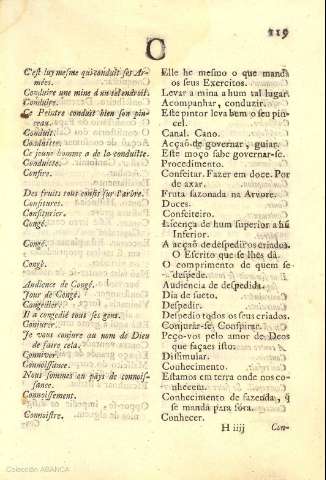 219
O
C'est luy mesme qui conduit ses Ar-
mées.
Conduire une mine d'un tel endroit.
Conduire.
Ce Peintre conduit bien son pin-
ceau.
Conduit.
Conduitte.
Ce jeune homme a de la conduitte.
Conduite.
Confire.
Des fruits tous confis sur l'arbre.
Confitures.
Confiturier.
Congé.
Congé.
Congé.
Audience de Congé.
Jour de Congé.
Congedier.
Il a congedié tous ses gens.
Conjurer.
Je vous conjure au nom de Dieu
de faire cela.
Conniver.
Connoissance.
Nous sommes en païs de connois-
sance.
Connoissement.
Connoistre.
Elle he mesmo o que manda
os seus Exercitos.
Levar a mina a hum tal lugar.
Acompanhar, conduzir.
Este pintor leva bem o seu pin-
cel.
Canal. Cano.
Acçaõ de governar, guiar.
Este moço sabe governar-se.
Procedimento.
Confeitar. Fazer em doce. Por
de
Fruta sazonada na Arvore.
Doces.
Confeiteiro.
Licença de hum superior a hũ
Inferior.
A acçaõ de despedir os criados.
O Escrito que se lhes dá.
O comprimento de quem se
despede.
Audiencia de despedida.
Dia de sueto.
Despedir.
Despedio todos os seus criados.
Conjurar-se, Conspirar.
Peço-vos pelo amor de Deos
que façaes isto:
Dissimular.
Conhecimento.
Estamos em terra onde nos co-
nhecem.
Conhecimento de fazenda, q̃
se manda para fóra.
Conhecer.
H iiij
Con-
Colección ABANCA